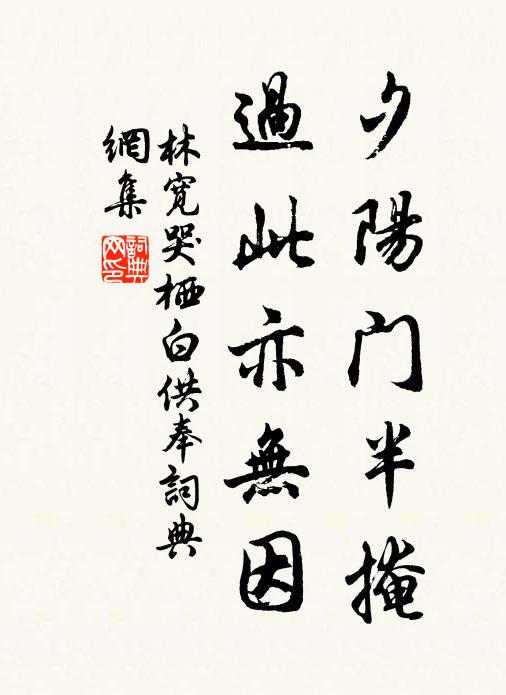 夕陽门半掩
過此亦無因
林寬哭栖白供奉詞典
網集
詞典
网印